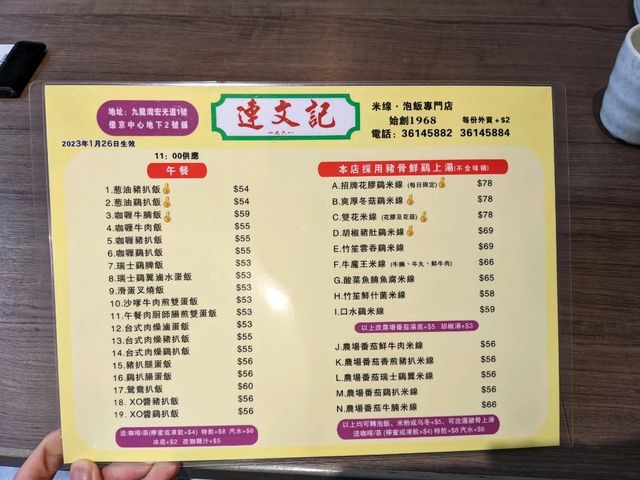 地址: 九龍灣宏光道1號
億京中心地下2號舖
連文記
一九六八
米線·泡飯專門店
始創1968 每份外賣+$2
電話: 36145882 36145884
2023年1月26日生效
11: 00供應
午餐
1.葱油豬扒飯 $54
2.葱油鷄扒飯 $54
3.咖喱牛腩飯 $59
4.咖喱牛肉飯 $55
5.咖喱豬扒飯 $55
6.咖喱鷄扒飯 $55
7.瑞士鷄髀飯 $53
8.瑞士鷄翼滷水蛋飯 $53
9.滑蛋叉燒飯 $53
10.沙嗲牛肉煎雙蛋飯 $53
11.午餐肉厨師腸煎雙蛋飯 $53
12.台式肉燥滷蛋飯 $53
13.台式肉燥豬扒飯 $55
14.台式肉燥鷄扒飯 $55
15.豬扒腿蛋飯 $56
16.鷄扒腸蛋飯 $56
17.鴛鴦扒飯 $60
18. XO醬豬扒飯 $56
19. XO醬鷄扒飯 $56
送:咖啡/茶(檸蜜或凍飲+$4) 特飲+$8 汽水+$6
冰底+$2 改咖喱汁+$5
本店採用豬骨鮮鷄上湯(不含味精)
A.招牌花膠鷄米線 (每日限定) $78
B.爽厚冬菇鷄米線 $78
C.雙花米線 (花膠及花菇) $78
D.胡椒豬肚鷄米線 $69
E.竹笙雲吞鷄米線 $69
F.牛魔王米線 (牛腩、牛丸、鮮牛肉) $66
G.酸菜魚腩魚腐米線 $65
H.竹笙鮮什菌米線 $58
I.口水鷄米線 $59
以上改農場番茄湯底+$5 胡椒湯+$3
J.農場番茄鮮牛肉米線 $56
K.農場番茄香煎豬扒米線 $56
L.農場番茄瑞士鷄翼米線 $56
M.農場番茄鷄扒米線 $56
N.農場番茄牛腩米線 $66
以上均可轉泡飯、米粉或烏冬+$5、可改選豬骨上湯
送咖啡/茶(檸蜜或凍飲+$4) 特飲+$8 汽水+$6